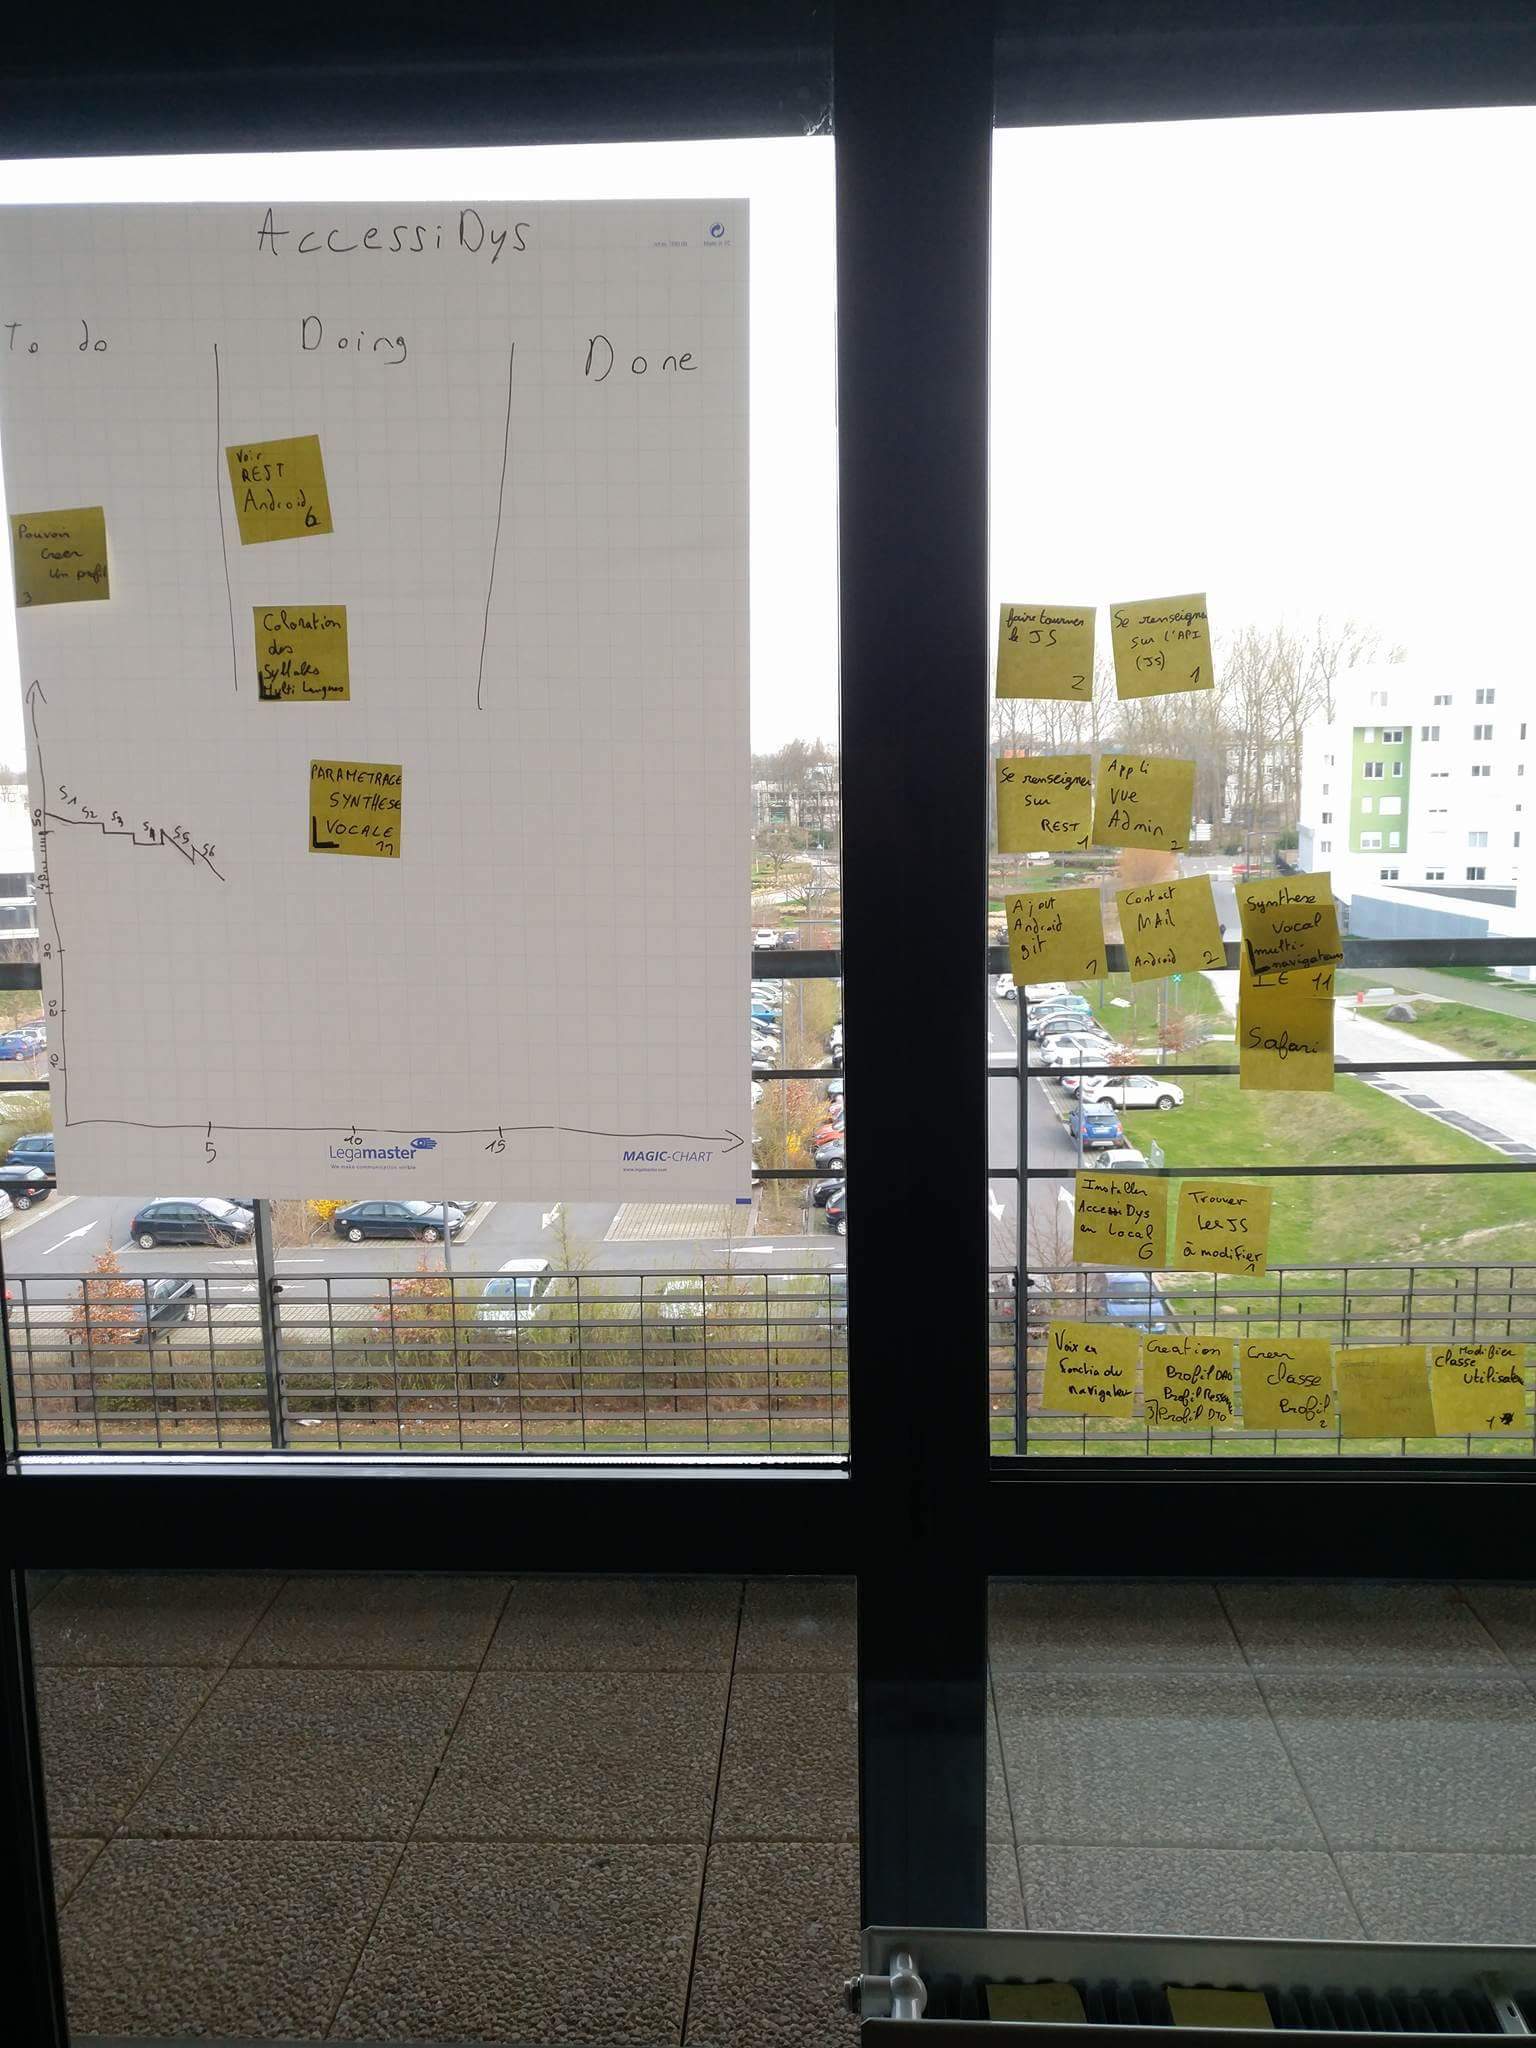 AccessiDys
To do
Doing
Done
Voir
REST
Android
6
Pouvoir
Creer
Un profil
3
Coloration
des
Syllabes
Multi langues
PARAMETRAGE
SYNTHESE
VOCALE
11
S1
S2
S3
S4
S5
S6
50
40
30
20
10
5
10
15
Legamaster
We make communication visible
MAGIC-CHART
www.legamaster.com
faire tourner
le JS
2
Se renseigner
sur l'API
(JS)
1
Se renseigner
sur
REST
1
Appli
vue
Admin
2
Ajout
Android
git
1
Contact
MAil
Android
2
Synthese
Vocal
multi-
navigateurs
IE 11
Safari
Installer
AccessiDys
en Local
6
Trouver
les JS
à modifier
1
Voix en
fonction du
navigateur
Creation
Profil DAO
Profil
3 Profil DTO
Creer
classe
Profil
2
Modifier
Classe
Utilisateur
1